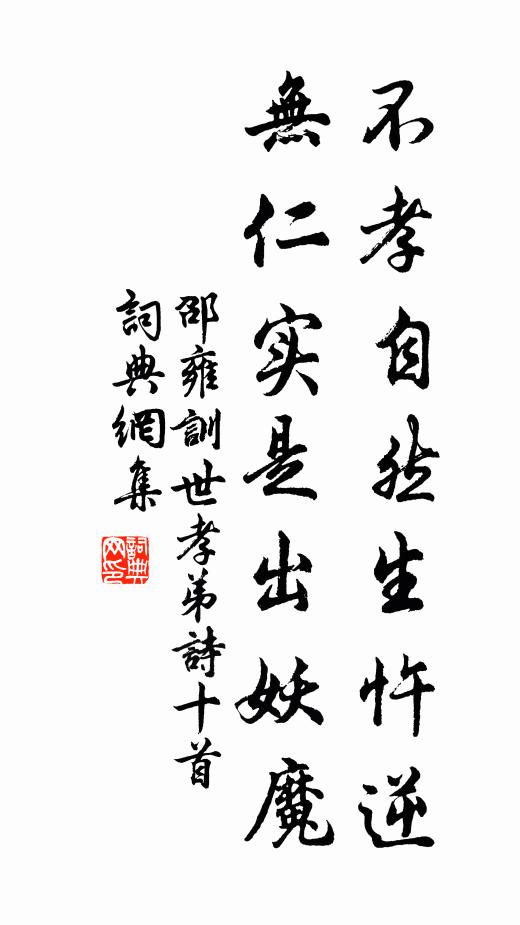 不孝自然生忤逆
無仁实是出妖魔
邵雍訓世孝弟詩十首
詞典網集
詞典網印